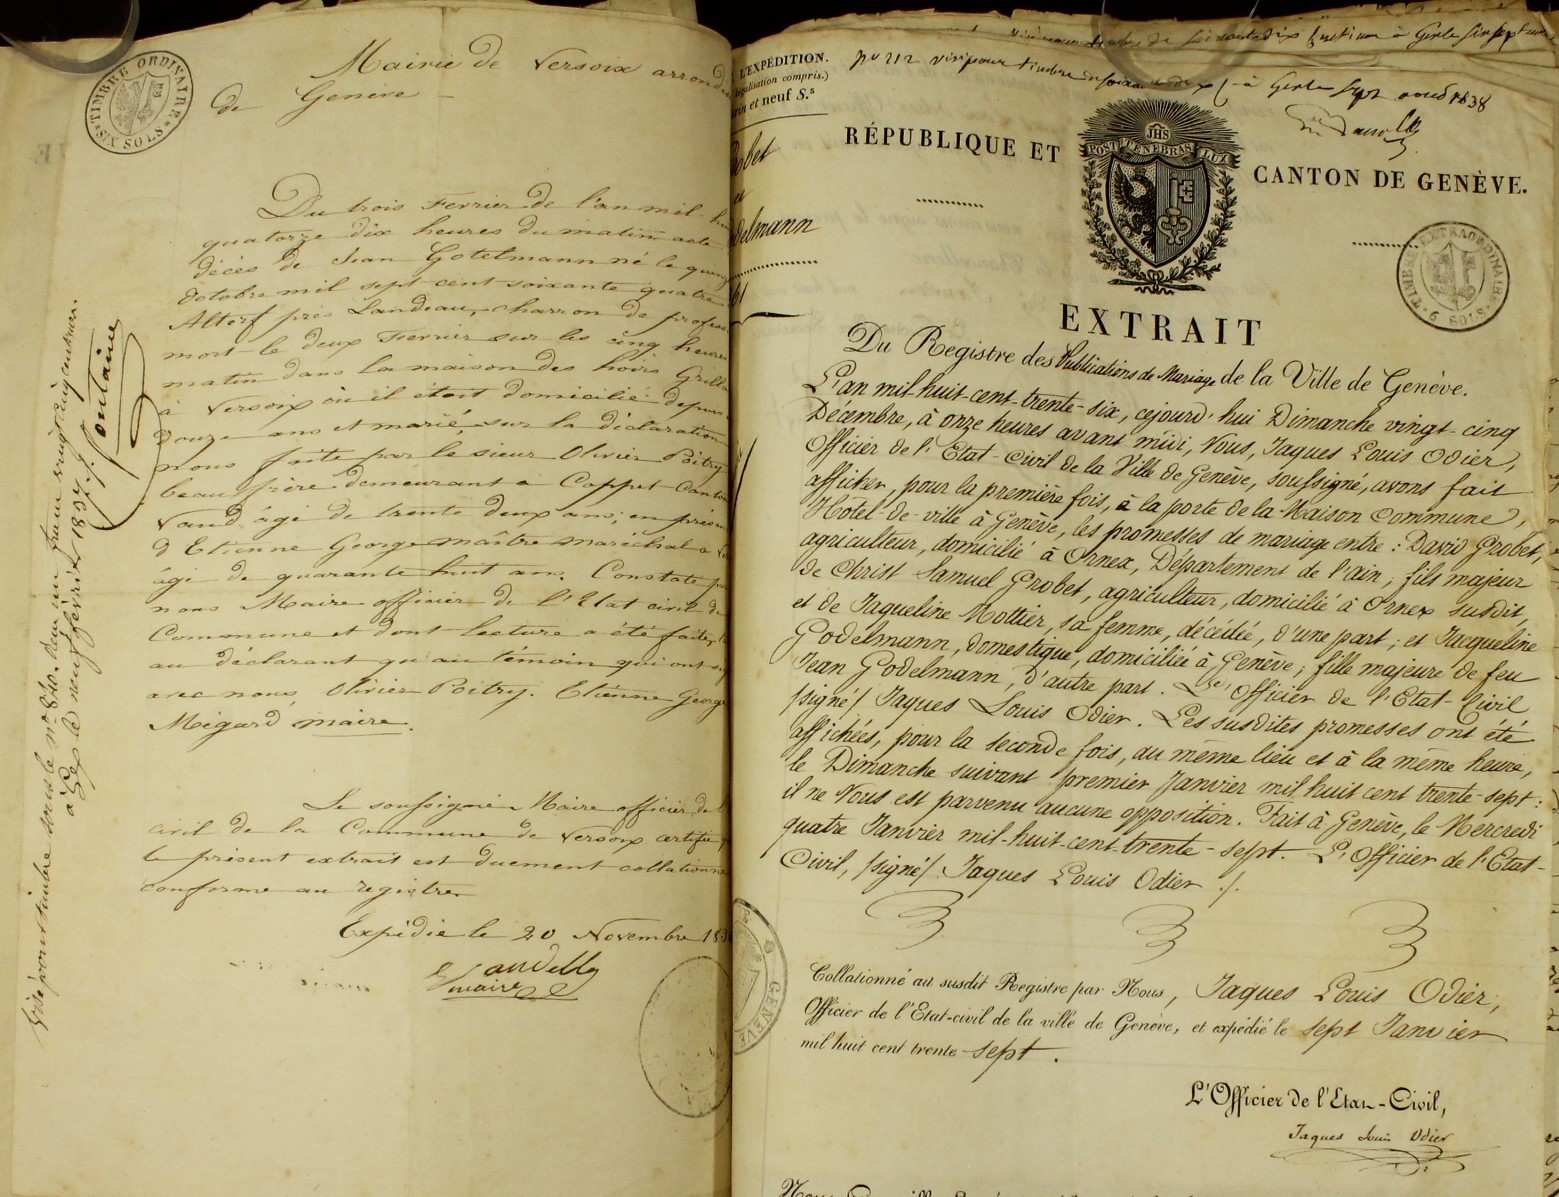 TIMBRE ORDINAIRE
SIX SOLS
Mairie de Versoix arrond
de Genève
Du trois Fevrier de l'an mil hui
quatorze dix heures du matin acte
décès de Jean Gotelmann né le quinz
Octobre mil sept cent soixante quatre
Altorf près Landeau, charron de profess
mort le deux Fevrier sur les cinq heures
matin dans la maison des hoirs
à Versoix où il étoit domicilié depuis
douze ans et marié sur la déclaration
nous faite par le sieur Olivier Poitry
beau frère demeurant a Coppet Canton
Vaud âgé de trente deux ans, en prése
d'Etienne George maître maréchal a
âgé de quarante huit ans. Constaté
nous Maire officier de l'Etat civil de
Commune et dont lecture a été faite
au déclarant qu'au témoin qui ont
avec nous, Olivier Poitry. Etienne George
Mégard maire.
Le soussigné Maire officier de l
civil de la Commune de Versoix certifie
le présent extrait est duement collationné
conforme au registre.
Expédié le 20 Novembre 183
maire
Visé pour timbre sous le n° 840. Reçu un franc vingt cinq centimes.
à Gex le neuf février 1837.
Fontaine
L'EXPÉDITION.
galisation compris.)
et neuf S.s
Grobet
elmann
N° 212 visé pour timbre à Gex le sept août 1838
RÉPUBLIQUE ET
JHS
POST TENEBRAS LUX
CANTON DE GENÈVE.
TIMBRE EXTRAORDINAIRE
6 SOLS
EXTRAIT
Du Registre des Publications de Mariage de la Ville de Genève.
L'an mil-huit-cent-trente-six, cejourd'hui Dimanche vingt-cinq
Décembre, à onze heures avant midi, Nous, Jaques Louis Odier,
Officier de l'Etat-Civil de la Ville de Genève, soussigné, avons fait
afficher, pour la première fois, à la porte de la Maison Commune,
Hôtel-de-ville à Genève, les promesses de mariage entre : David Grobet,
agriculteur, domicilié à Ornex, Département de l'Ain, fils majeur
de Christ Samuel Grobet, agriculteur, domicilié à Ornex susdit,
et de Jaqueline Mottier, sa femme, décédée, d'une part ; et Jacqueline
Godelmann, domestique, domiciliée à Genève, fille majeure de feu
Jean Godelmann, d'autre part. L'Officier de l'Etat-Civil
/signé/ Jaques Louis Odier. Les susdites promesses ont été
affichées, pour la seconde fois, au meme lieu et à la même heure,
le Dimanche suivant premier Janvier mil huit cent trente-sept :
il ne Nous est parvenu aucune opposition. Fait à Genève, le Mercredi
quatre Janvier mil-huit-cent-trente-sept. L'Officier de l'Etat-
Civil, /signé/ Jaques Louis Odier ./.
GENÈVE
Collationné au susdit Registre par Nous, Jaques Louis Odier,
Officier de l'Etat-civil de la ville de Genève, et expédié le sept Janvier
mil huit cent trente-sept.
L'Officier de l'Etat-Civil,
Jaques Louis Odier